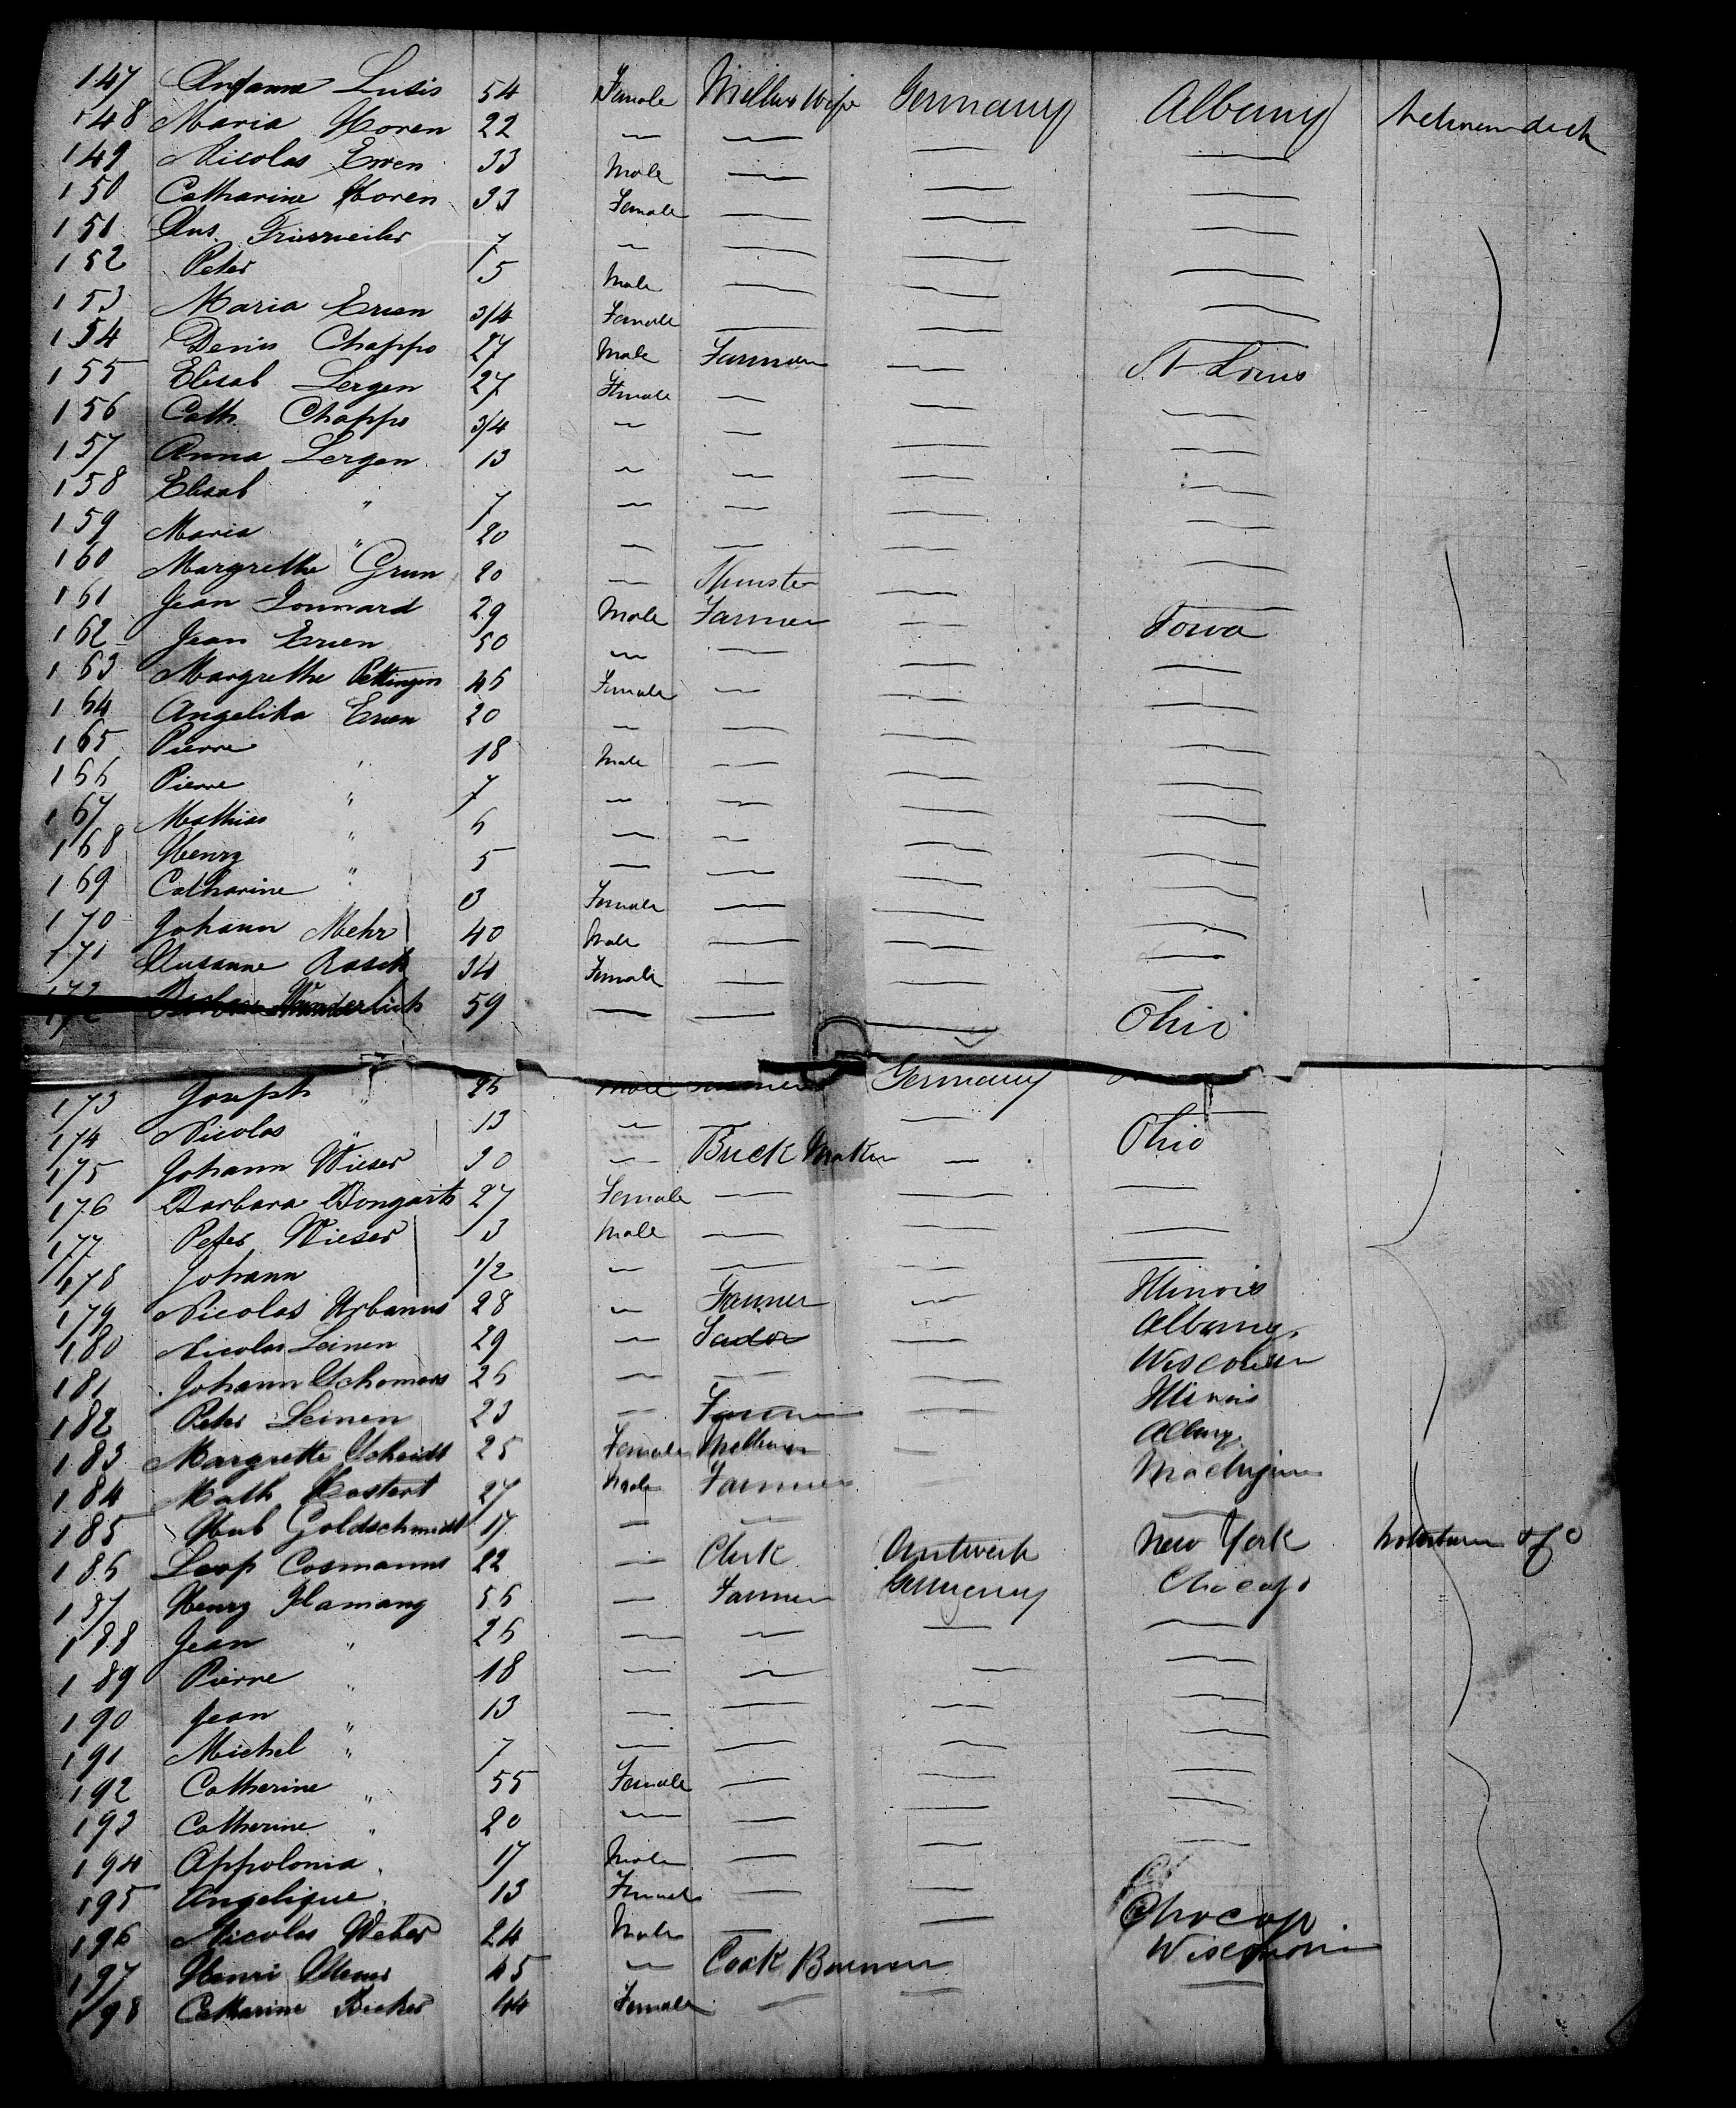 147 Lusis 54 Female Millers Wife Germany Albany
148 Maria Horen 22 — — — —
149 Nicolas Erren 33 Male — — —
150 Catharine Horen 33 Female — — —
151 7 — — — —
152 Peter 5 Male — — —
153 Maria Erren 3/4 Female — — —
154 Denis Chappo 27 Male Farmer — St Louis
155 Elisab Lergen 27 Female — — —
156 Cath. Chappo 3/4 — — — —
157 Anna Lergen 13 — — — —
158 Elisab " 7 — — — —
159 Maria " 20 — — — —
160 Margrethe Grun 20 — —
161 Jean Lonnard 29 Male Farmer — Iowa
162 Jean Erren 50 — — — —
163 Margrethe Pettinger 45 Female — — —
164 Angelika Erren 20 — — — —
165 Pierre " 18 Male — — —
166 Pierre " 7 — — — —
167 Mathias " 6 — — — —
168 Henry " 5 — — — —
169 Catharine " 3 Female — — —
170 Johann Mehr 40 Male — — —
171 Susanne Rasch 34 Female — — —
172 Barbara Wunderlich 59 — — — Ohio
173 Joseph " 25 Male Germany
174 Nicolas " 13 — — —
175 Johann Wieser 30 — Brick Maker — Ohio
176 Barbara Bongarts 27 Female — — —
177 Peter Wieser 3 Male — — —
178 Johann 1/2 — — — —
179 Nicolas Urbanus 28 — Farmer — Illinois
180 Nicolas Leinen 29 — — Albany
181 Johann Schomers 26 — — — Wisconsin
182 Peter Leinen 23 — Farmer — Illinois
183 Margrette Schmidt 25 Female — Albany
184 Math Kostert 27 Male Farmer — Michigan
185 Hub Goldschmidt 17 — — —
186 Leop Cosmanns 22 — Clerk Antwerp New York
187 Henry Flamang 56 — Farmer Germany Chicago
188 Jean " 26 — — — —
189 Pierre " 18 — — — —
190 Jean " 13 — — — —
191 Michel " 7 — — — —
192 Catherine " 55 Female — — —
193 Catherine " 20 — — — —
194 Appolonia " 17 Male — — —
195 Angelique " 13 Female — —
196 Nicolas Weber 24 Male — — Chicago
197 Henri 45 — Wisconsin
198 Catharine Becker 44 Female — — —